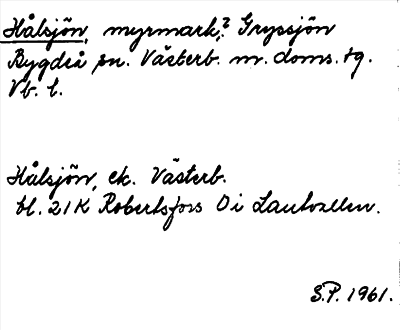 Hålsjön, myrmark,? Gryssjön
Bygdeå sn. Västerb. m. doms. tg.
Vb. l.
Hålsjön, ek. Västerb.
bl. 21K Robertsfors 0 i Lantvallen.
S.P. 1961.